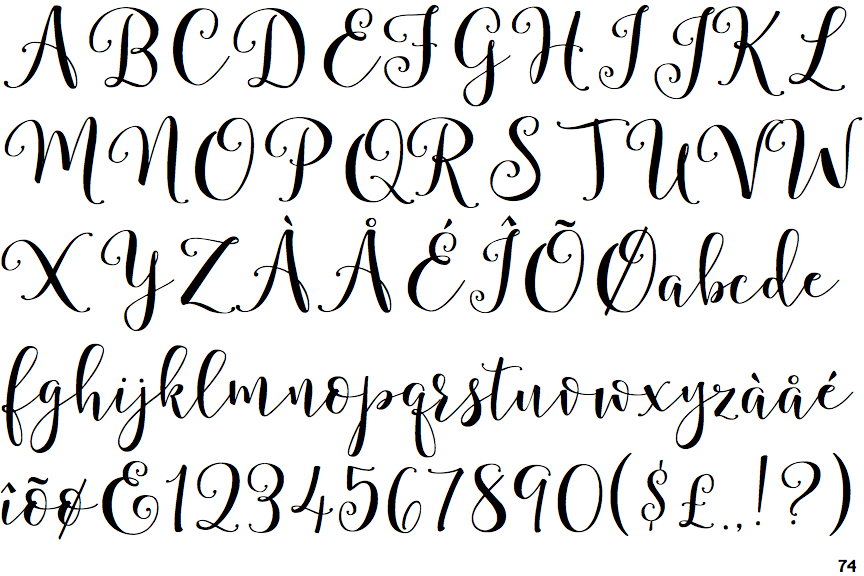 ABCDEFGHIJKL
MNOPQRSTUVW
XYZÀÅÉÎÕØabcde
fghijklmnopqrstuvwxyzàåé
îõø&1234567890($£.,!?)
74